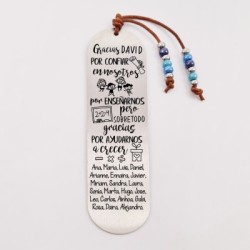 Gracias DAVID
POR CONFIAR
en nosotros
por ENSEÑARNOS
2+2=4
pero
SOBRETODO
gracias
POR AYUDARNOS
a crecer
Ana, María, Luis, Daniel,
Arianne, Ennara, Javier,
Miriam, Sandra, Laura,
Sonia, Marta, Hugo, Jose,
Leo, Carlos, Ainhoa, Gabi,
Rosa, Diana, Alejandra